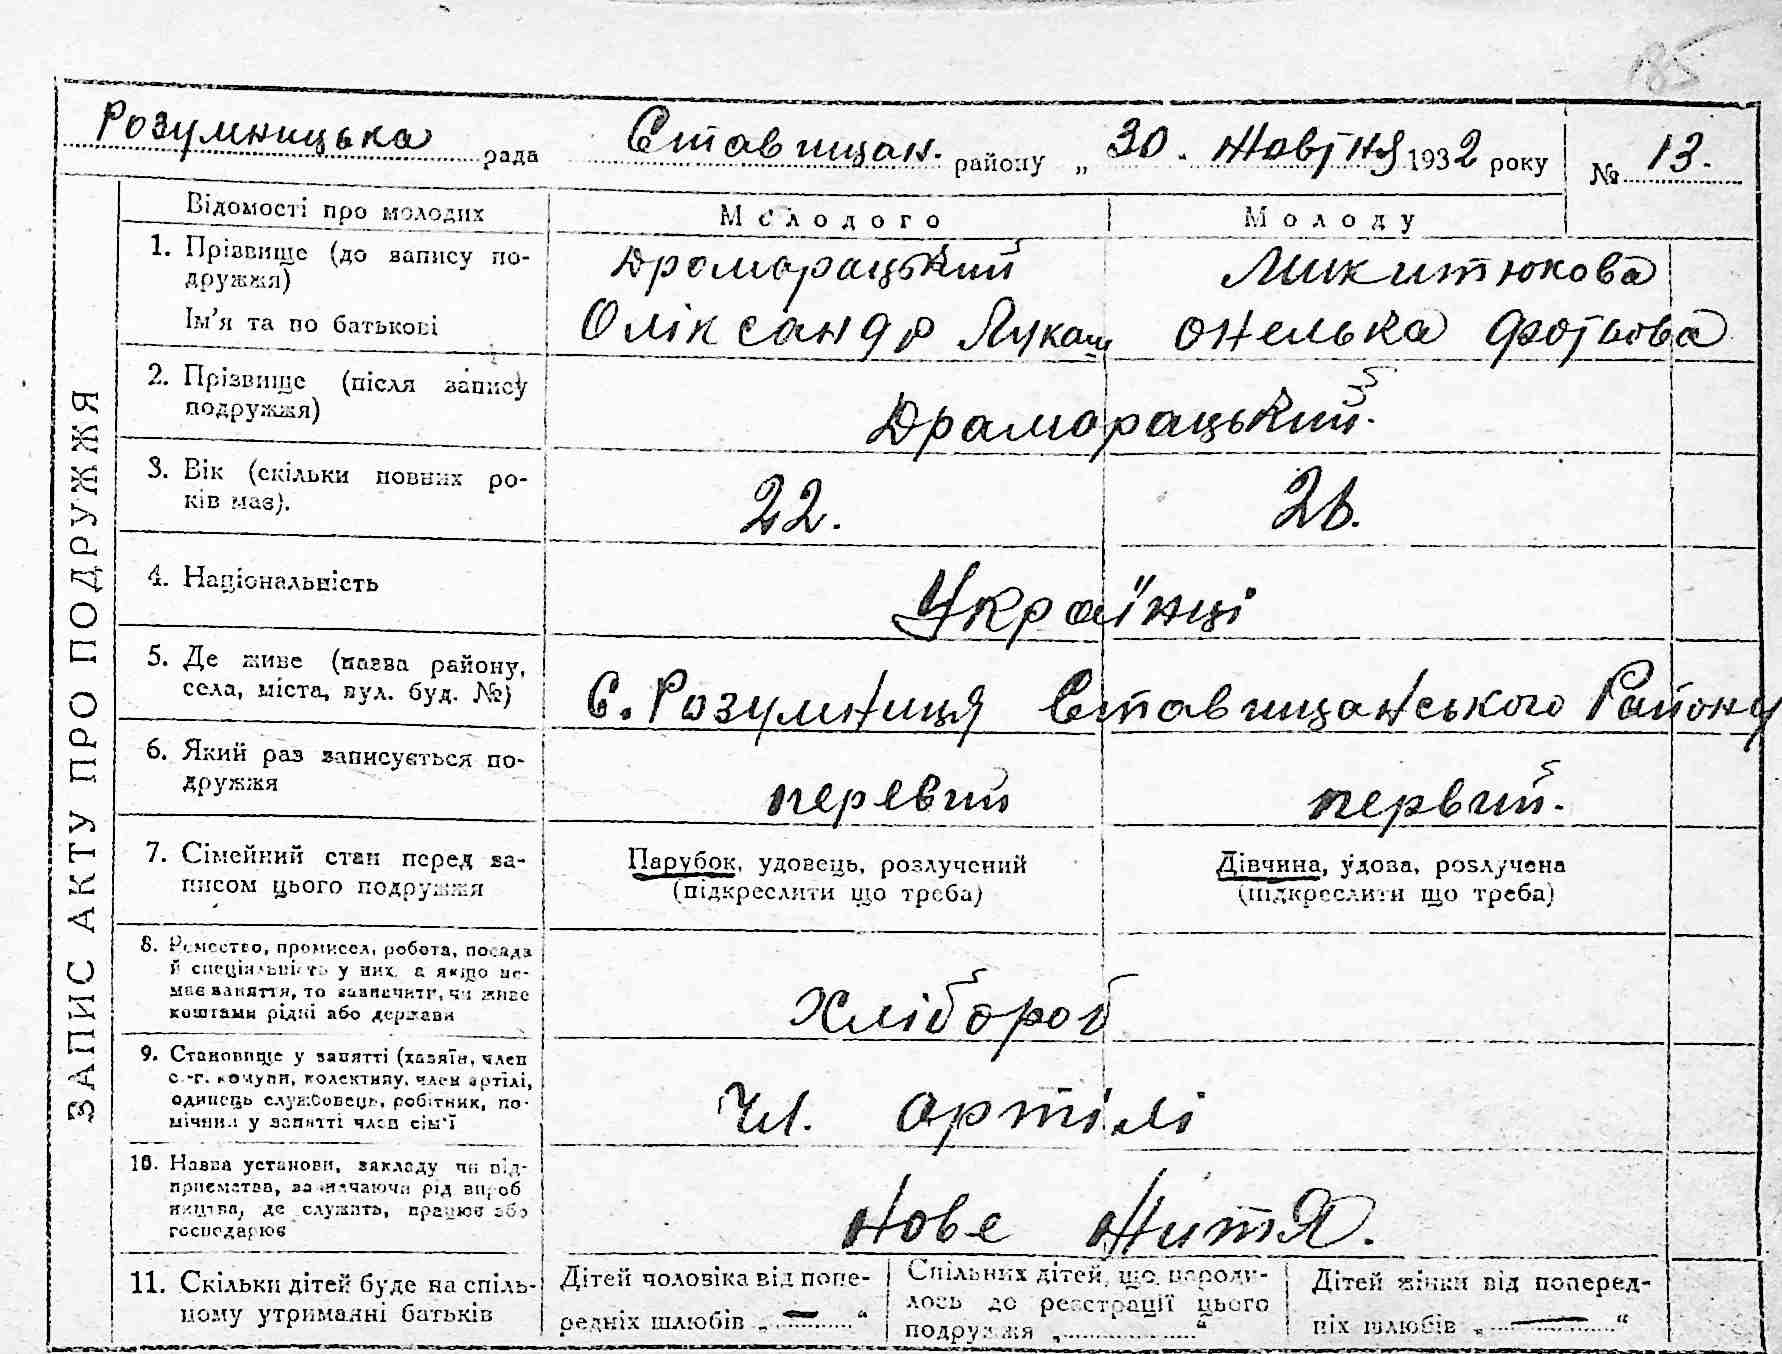 185
Розумницька рада Ставищан. району „ 30. Жовтня 1932 року № 13.
ЗАПИС АКТУ ПРО ПОДРУЖЖЯ
Відомості про молодих
Молодого
Молоду
1. Прізвище (до запису по-
дружжя)
Ім'я та по батькові
Драморацький
Оліксандр Лукаш
Микитюкова
Онелька Фотьова
2. Прізвище (після запису
подружжя)
Драморацький.
3. Вік (скільки повних ро-
ків має).
22.
4. Національність
Українці
5. Де живе (назва району,
села, міста, вул. буд. №)
С. Розумниця Ставищанського Району
6. Який раз записується по-
дружжя
перевий
первий.
7. Сімейний стан перед за-
писом цього подружжя
Парубок, удовець, розлучений
(підкреслити що треба)
Дівчина, удова, розлучена
(підкреслити що треба)
8. Ремество, промисел, робота, посада
й спеціяльність у них, а якщо не-
має заняття, то зазначити, чи живе
коштами рідні або держави
Хлібороб
9. Становище у занятті (хазяїн, член
с.-г. комуни, колективу, член артілі,
одинець службовець, робітник, по-
мічний у занятті член сім'ї
Чл. артілі
10. Назва установи, закладу чи під-
приємства, зазначаючи рід вироб
ництва, де служить, працює або
господарює
Нове Життя.
11. Скільки дітей буде на спіль-
ному утриманні батьків
Дітей чоловіка від попе-
редніх шлюбів „ — “
Спільних дітей, що народи-
лось до реєстрації цього
подружжя „ “
Дітей жінки від поперед-
ніх шлюбів „ — “